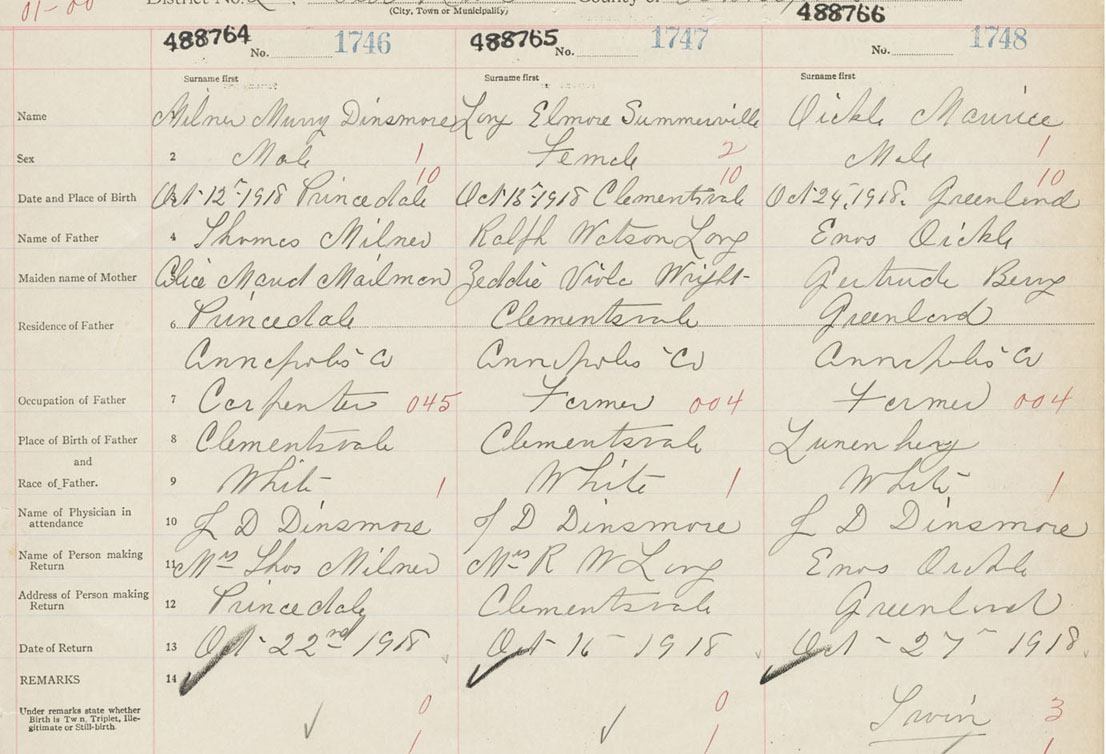 01-00 District No. 2. County of
(City, Town or Municipality)
488764 No. 1746 488765 No. 1747 488766 No. 1748
Surname first Surname first Surname first
Name Milner Murry Dinsmore Long Elmore Summerville Oickle Maurice
Sex 2 Male 1 Female 2 Male 1
10 10 10
Date and Place of Birth Oct 12 1918 Princedale Oct 13 1918 Clementsvale Oct 24, 1918. Greenland
Name of Father 4 Thomas Milner Ralph Watson Long Enos Oickle
Maiden name of Mother Alice Maud Mailman Zeddie Viola Wright Gertrude Berry
Residence of Father 6 Princedale Clementsvale Greenland
Annapolis Co Annapolis Co Annapolis Co
Occupation of Father 7 Carpenter 045 Farmer 004 Farmer 004
Place of Birth of Father 8 Clementsvale Clementsvale Lunenberg
and
Race of Father. 9 White 1 White 1 White 1
Name of Physician in
attendance 10 L D Dinsmore L D Dinsmore L D Dinsmore
Name of Person making
Return 11 Mrs Thos Milner Mrs R W Long Enos Oickle
Address of Person making
Return 12 Princedale Clementsvale Greenland
Date of Return 13 Oct 22nd 1918 Oct 16 1918 Oct 27 1918.
REMARKS 14
Under remarks state whether
Birth is Twin, Triplet, Ille-
gitimate or Still-birth. 0 0 Irvin 3
1 1 1